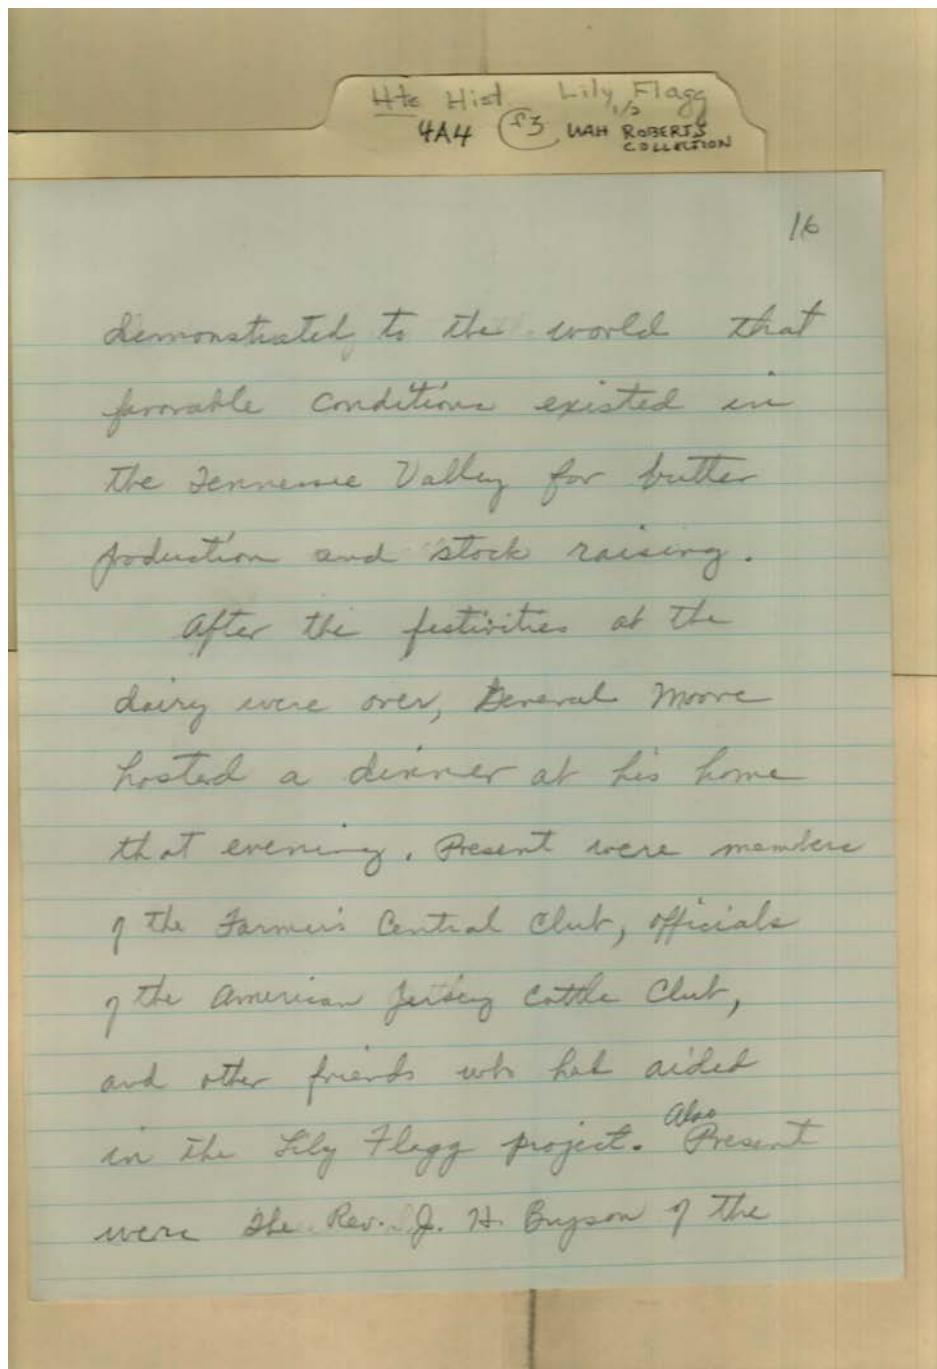 Hts Hist Lily Flagg
1/2
4A4 f3 UAH ROBERTS
COLLECTION
16
demonstrated to the world that
favorable conditions existed in
the Tennessee Valley for butter
production and stock raising.
After the festivities at the
dairy were over, General Moore
hosted a dinner at his home
that evening. Present were members
of the Farmer's Central Club, officials
of the American Jersey Cattle Club,
and other friends who had aided
in the Lily Flagg project. Also Present
were the Rev. J. H. Bryson of the